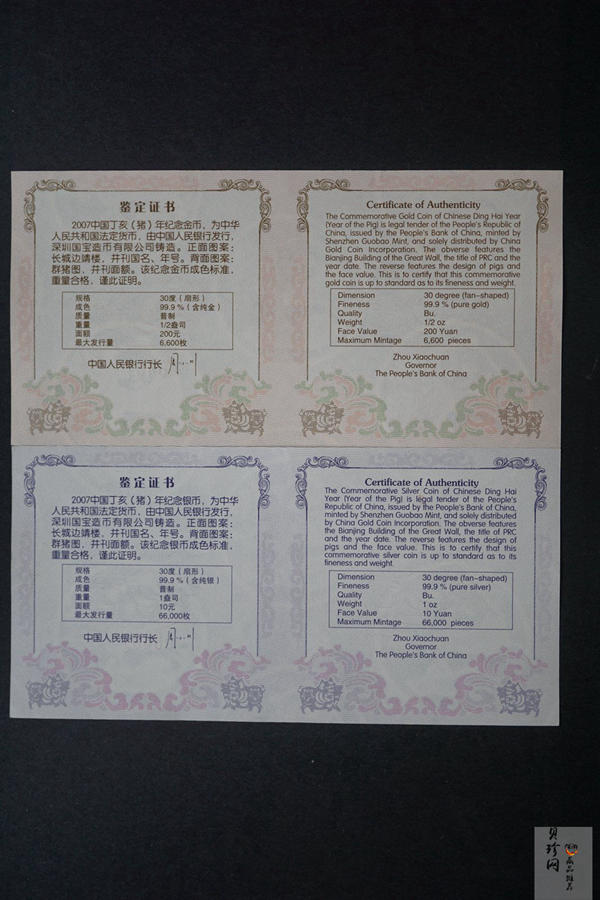 鉴定证书
2007中国丁亥（猪）年纪念金币，为中华
人民共和国法定货币，由中国人民银行发行，
深圳国宝造币有限公司铸造。正面图案：
长城边靖楼，并刊国名、年号。背面图案：
群猪图，并刊面额。该纪念金币成色标准，
重量合格，谨此证明。
规格 30度（扇形）
成色 99.9％（含纯金）
质量 普制
重量 1/2盎司
面额 200元
最大发行量 6,600枚
中国人民银行行长
Certificate of Authenticity
The Commemorative Gold Coin of Chinese Ding Hai Year
(Year of the Pig) is legal tender of the People's Republic of
China, issued by the People's Bank of China, minted by
Shenzhen Guobao Mint, and solely distributed by China
Gold Coin Incorporation. The obverse features the
Bianjing Building of the Great Wall, the title of PRC and the
year date. The reverse features the design of pigs and
the face value. This is to certify that this commemorative
gold coin is up to standard as to its fineness and weight.
Dimension 30 degree (fan-shaped)
Fineness 99.9% (pure gold)
Quality Bu.
Weight 1/2 oz
Face Value 200 Yuan
Maximum Mintage 6,600 pieces
Zhou Xiaochuan
Governor
The People's Bank of China
鉴定证书
2007中国丁亥（猪）年纪念银币，为中华
人民共和国法定货币，由中国人民银行发行，
深圳国宝造币有限公司铸造。正面图案：
长城边靖楼，并刊国名、年号。背面图案：
群猪图，并刊面额。该纪念银币成色标准，
重量合格，谨此证明。
规格 30度（扇形）
成色 99.9％（含纯银）
质量 普制
重量 1盎司
面额 10元
最大发行量 66,000枚
中国人民银行行长
Certificate of Authenticity
The Commemorative Silver Coin of Chinese Ding Hai
Year (Year of the Pig) is legal tender of the People's
Republic of China, issued by the People's Bank of China,
minted by Shenzhen Guobao Mint, and solely distributed
by China Gold Coin Incorporation. The obverse features
the Bianjing Building of the Great Wall, the title of PRC
and the year date. The reverse features the design of
pigs and the face value. This is to certify that this
commemorative silver coin is up to standard as to its
fineness and weight.
Dimension 30 degree (fan-shaped)
Fineness 99.9% (pure silver)
Quality Bu.
Weight 1 oz
Face Value 10 Yuan
Maximum Mintage 66,000 pieces
Zhou Xiaochuan
Governor
The People's Bank of China
贝珍网